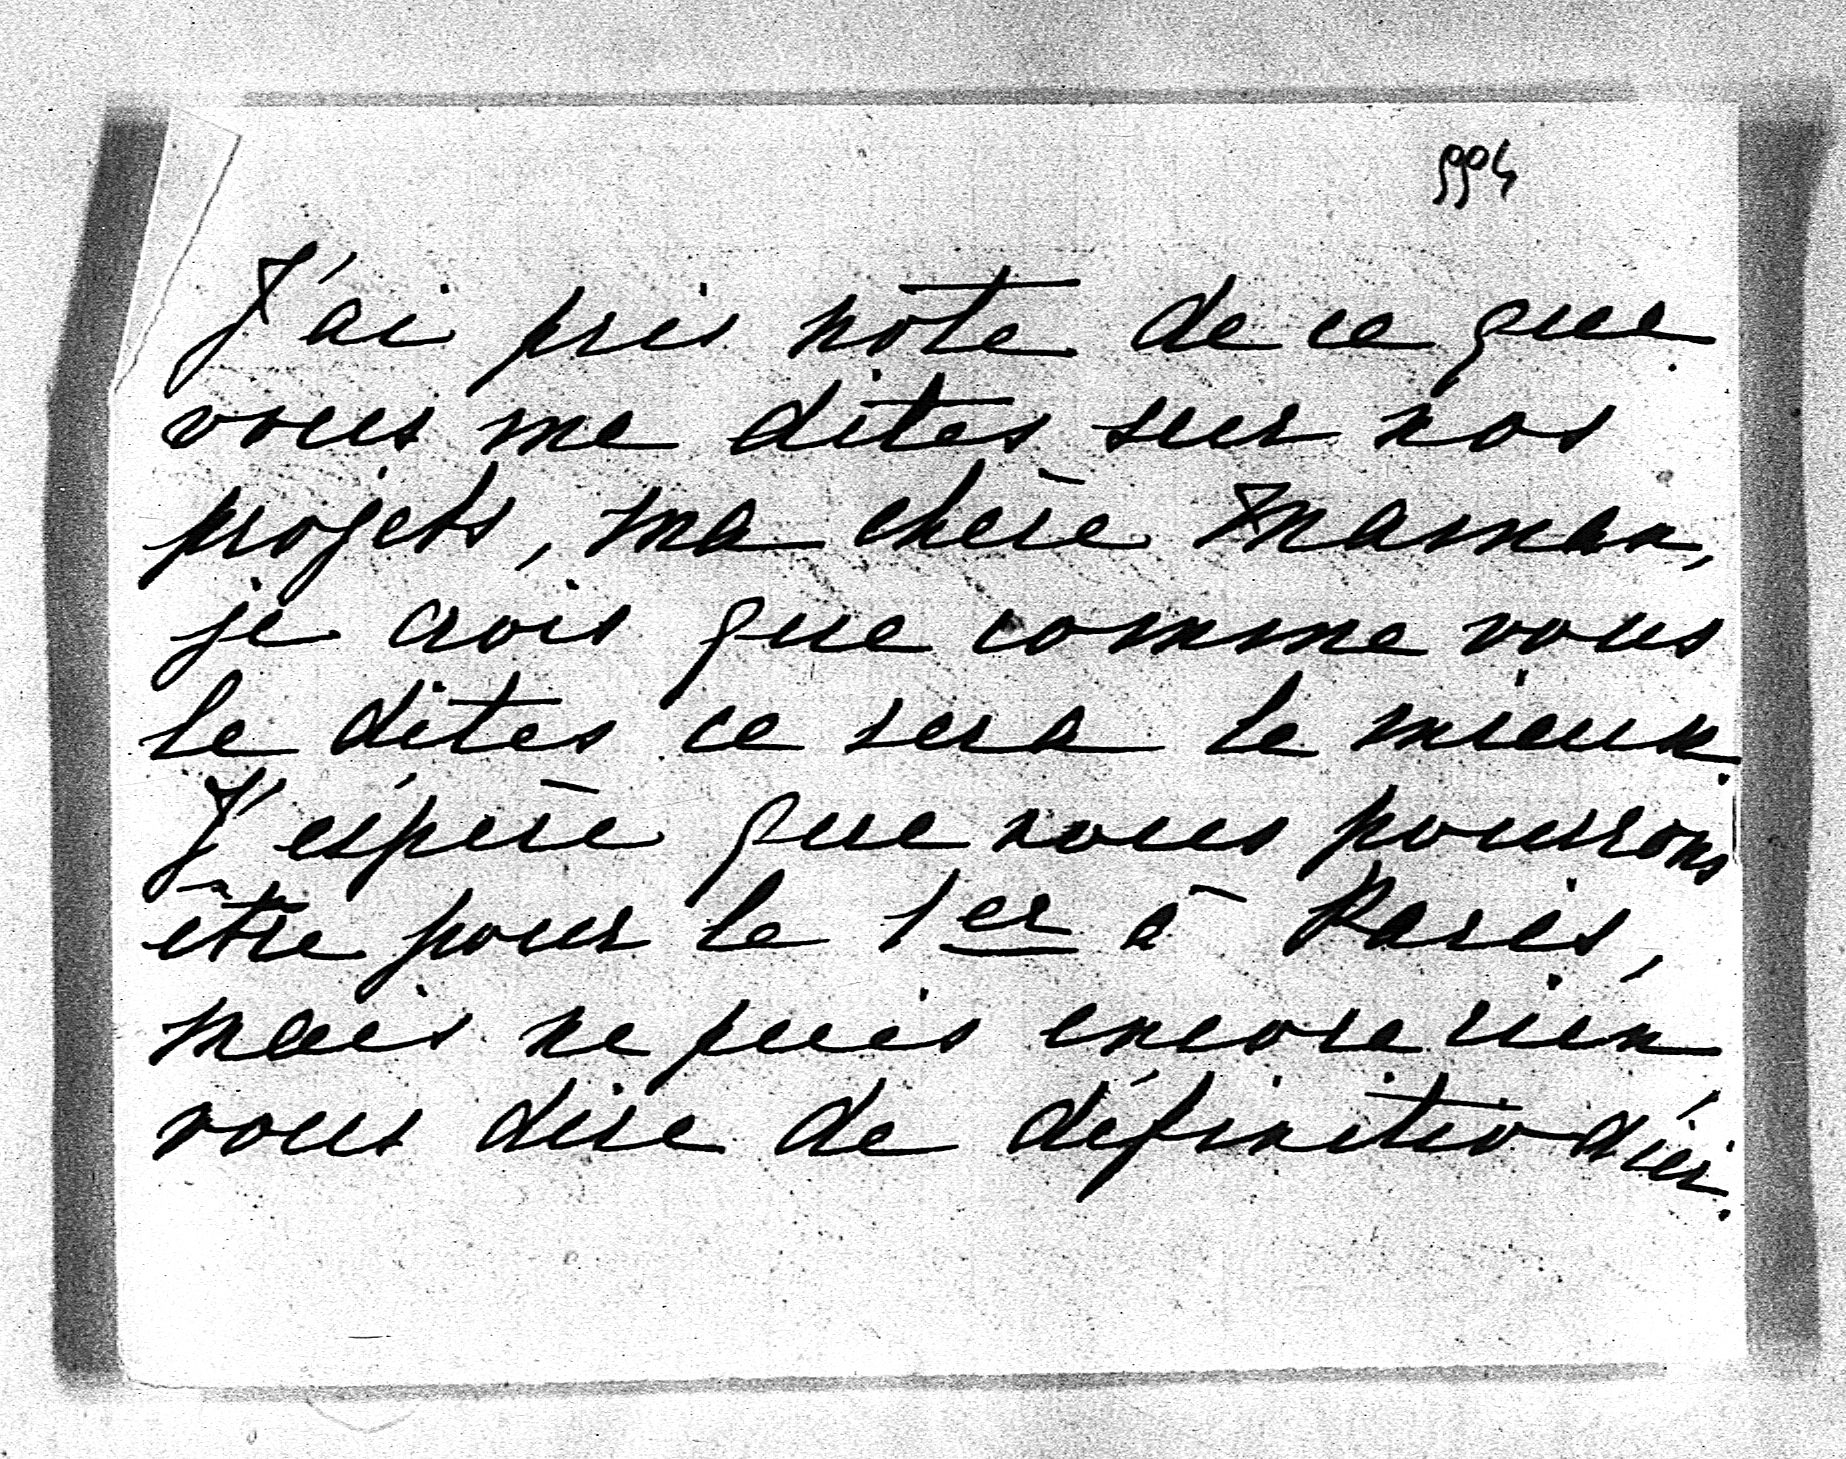 994
J'ai pris note de ce que
vous me dites sur nos
projets, ma chère Maman,
je crois que comme vous
le dites ce sera le mieux.
J'espère que nous pourrons
être pour le 1er à Paris,
mais ne puis encore rien
vous dire de définitiv d'ici.